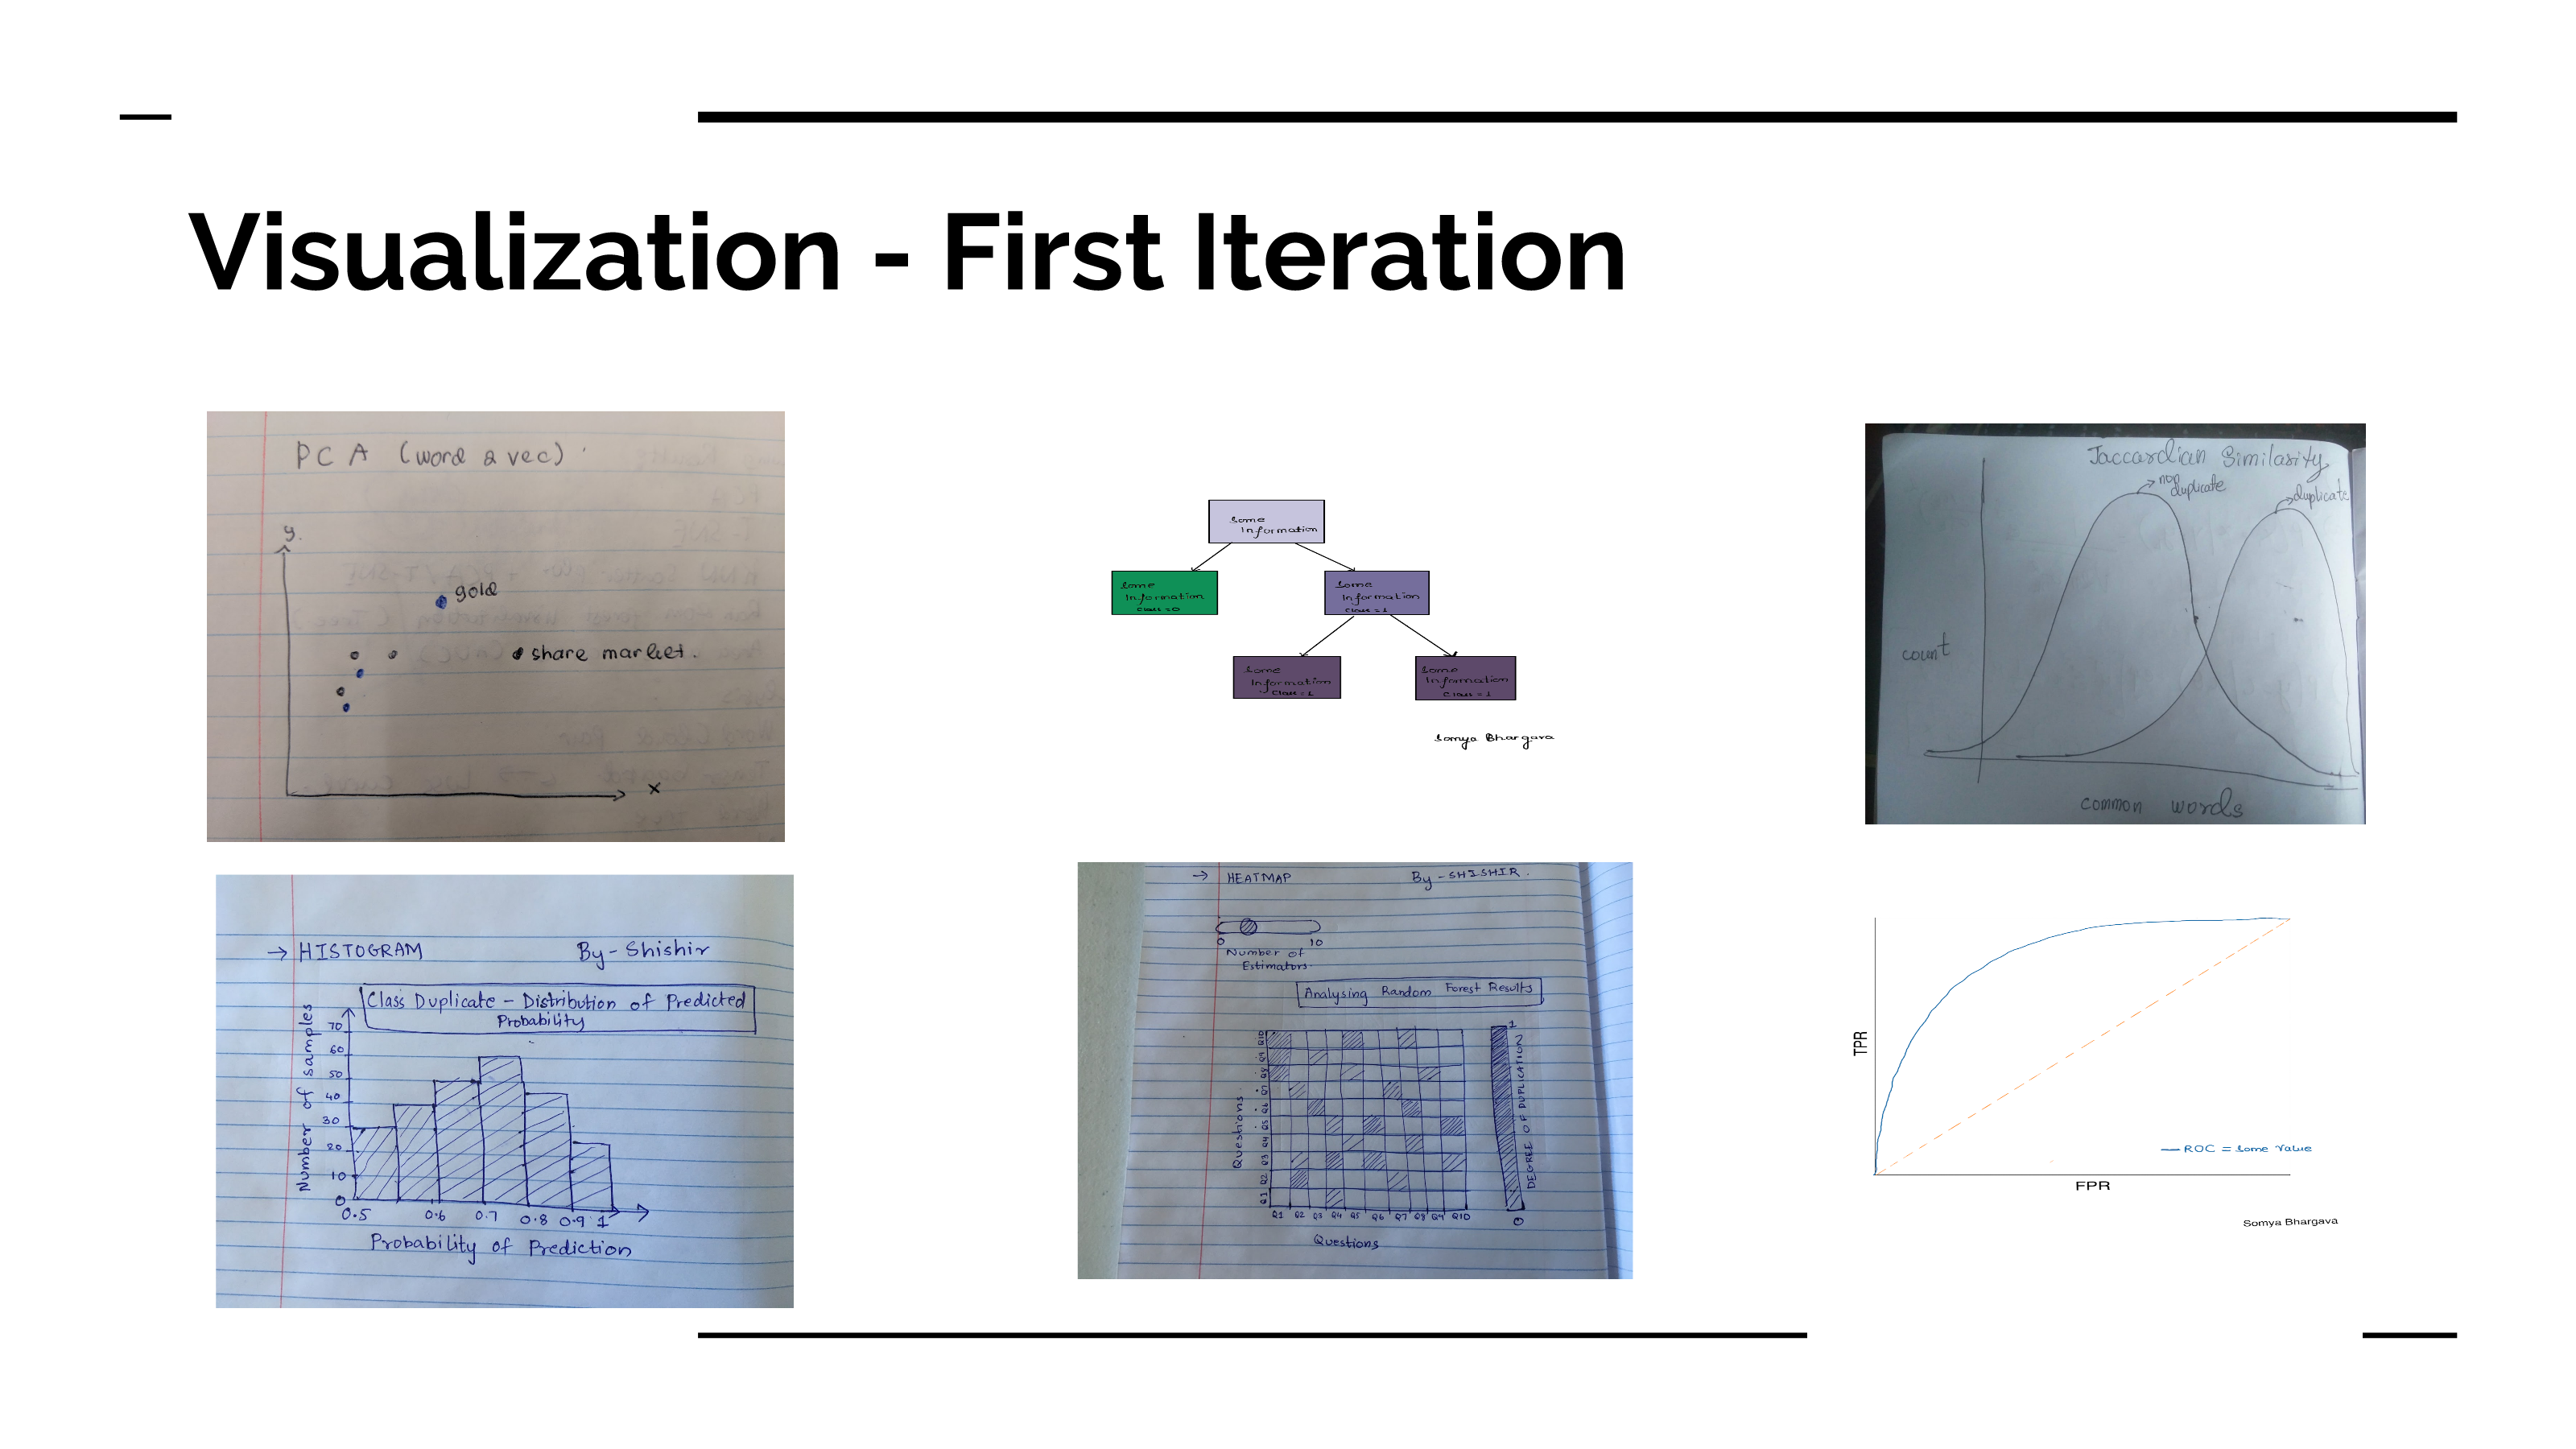 Visualization - First Iteration
PCA (word 2 vec)
y.
gold
share market.
x
some
Information
some
Information
Class = 0
some
Information
Class = 1
some
Information
Class = 1
some
Information
Class = 1
Somya Bhargava
Jaccardian Similarity
non duplicate
duplicate
count
common words
→ HISTOGRAM By - Shishir
Class Duplicate - Distribution of Predicted
Probability
Number of samples
70
60
50
40
30
20
10
0
0.5 0.6 0.7 0.8 0.9 1
Probability of Prediction
→ HEATMAP By - SHISHIR.
0 10
Number of
Estimators
Analysing Random Forest Results
Questions
Q10
Q9
Q8
Q7
Q6
Q5
Q4
Q3
Q2
Q1
Q1 Q2 Q3 Q4 Q5 Q6 Q7 Q8 Q9 Q10
Questions
1
DEGREE OF DUPLICATION
0
TPR
ROC = Some Value
FPR
Somya Bhargava